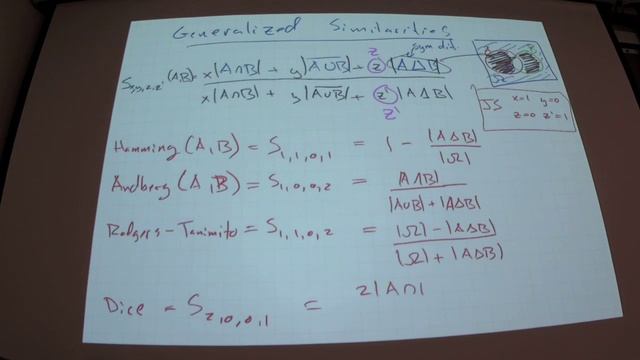 Generalized Similarities
sym dif.
S_{x,y,z,z'}(A,B) = x|A∩B| + y|\overline{A∪B}| + z |A△B|
x|A∩B| + y|\overline{A∪B}| + z' |A△B|
z
z'
Ω
JS x=1 y=0
z=0 z'=1
Hamming (A,B) = S_{1,1,0,1} = 1 - |A△B| / |Ω|
Andberg (A,B) = S_{1,0,0,2} = |A∩B| / |A∪B| + |A△B|
Rodgers-Tanimito = S_{1,1,0,2} = |Ω| - |A△B| / |Ω| + |A△B|
Dice = S_{2,0,0,1} = 2|A∩|